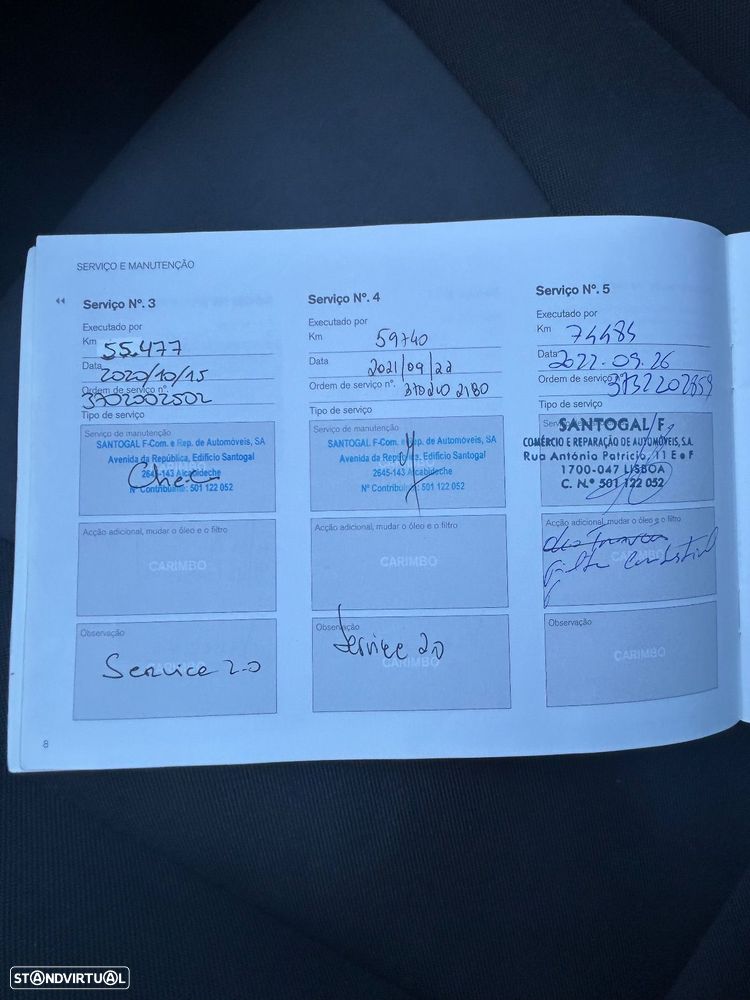 SERVIÇO E MANUTENÇÃO
Serviço Nº. 3
Executado por
Km 55.477
Data 2020/10/15
Ordem de serviço nº.
3702002502
Tipo de serviço
Serviço de manutenção
SANTOGAL F-Com. e Rep. de Automóveis, SA
Avenida da República, Edifício Santogal
2645-143 Alcabideche
Nº Contribuinte: 501 122 052
Acção adicional, mudar o óleo e o filtro
CARIMBO
Observação
CARIMBO
Service 2.0
Serviço Nº. 4
Executado por
Km 59740
Data 2021/09/22
Ordem de serviço nº. 370210 2180
Tipo de serviço
Serviço de manutenção
SANTOGAL F-Com. e Rep. de Automóveis, SA
Avenida da República, Edifício Santogal
2645-143 Alcabideche
Nº Contribuinte: 501 122 052
Acção adicional, mudar o óleo e o filtro
CARIMBO
Observação
Service 2.0
CARIMBO
Serviço Nº. 5
Executado por
Km 74484
Data 2022.09.26
Ordem de serviço 3732202859
Tipo de serviço
SANTOGAL F,
COMÉRCIO E REPARAÇÃO DE AUTOMÓVEIS, S.A.
Rua António Patrício, 11 E e F
1700-047 LISBOA
C. N.º 501 122 052
Acção adicional, mudar o óleo e o filtro
Filtro Combustivel
Observação
CARIMBO
8
STANDVIRTUAL